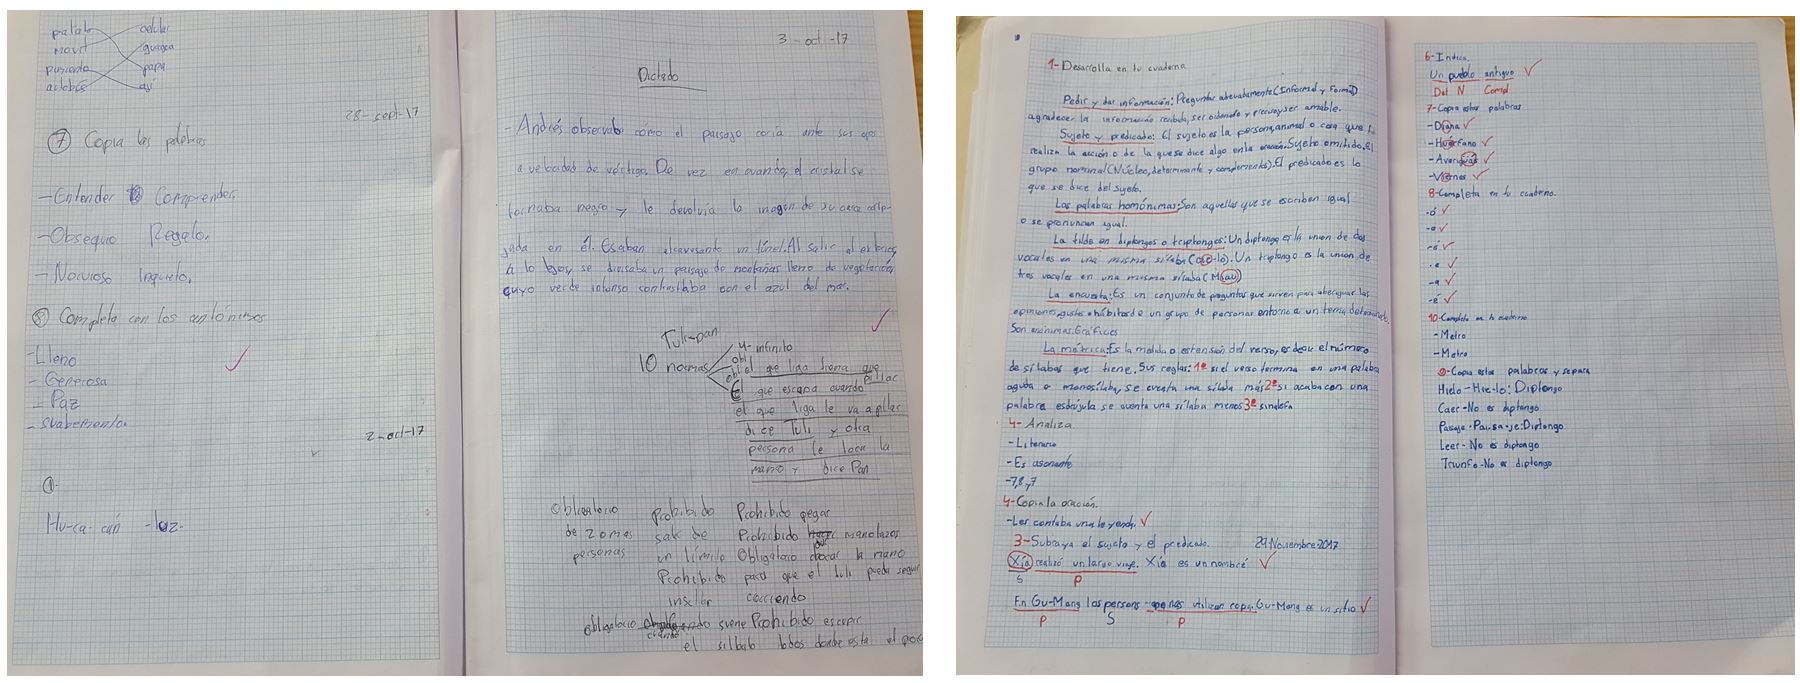 patata celular
movil guagua
pimiento papa
autobús ají
28-sept-17
7 Copia las palabras
-Entender Comprender.
-Obsequio Regalo.
-Nervioso Inquieto.
8 Completa con los antónimos
-Lleno
-Generosa
-Paz
-suavemente.
2-oct-17
1.
Hu-ca-cán -luz-
3-oct-17
Dictado
-Andrés observaba cómo el paisaje coría ante sus ojos
a velocidad de vértigo. De vez en cuando, el cristal se
tornaba negro y le devolvía la imagen de su cara
en él. Esaban atravesando un túnel. Al salir al exterior,
a lo lejos, se divisaba un paisaje de montañas lleno de vegetación,
cuyo verde intenso contrastaba con el azul del mar.
Tuli-pan
10 normas 4-infinito
obl el que liga tiene que pillar
obl El que escapa cuando
el que liga le va a pillar
dice Tuli y otra
persona le toca la
mano y dice Pan
Obligatorio Prohibido Prohibido pegar
de 2 o mas salir de Prohibido manotazos
personas un límite Obligatorio chocar la mano
Prohibido para que el tuli pueda seguir
insultar corriendo
obligatorio cuando suene Prohibido escupir
el silbato todos donde esta el
1-Desarrolla en tu cuaderno
Pedir y dar información: Preguntar adecuadamente (Informal y Formal)
agradecer la información recibida, ser ordenado y preciso y ser amable.
Sujeto y predicado: El sujeto es la persona, animal o cosa que
realiza la acción o de la que se dice algo en la oración. Sujeto omitido. El
grupo nominal (Núcleo, determinante y complementos). El predicado es lo
que se dice del sujeto.
Las palabras homónimas: Son aquellas que se escriben igual
o se pronuncian igual.
La tilde en diptongos o triptongos: Un diptongo es la union de dos
vocales en una misma sílaba (). Un triptongo es la union de
tres vocales en una misma sílaba ()
La encuesta: Es un conjunto de preguntas que sirven para aberiguar las
opiniones, gustos o hábitos de un grupo de personas entorno a un tema determinado.
Son anónimas. Gráficos
La métrica: Es la medida o estensión del verso, es decir el número
de sílabas que tiene. Sus reglas: 1ª si el verso termina en una palabra
aguda o monosílaba, se cuenta una sílaba más 2ª si acaba con una
palabra esdrújula se cuenta una sílaba menos 3ª sinalefa
4-Analiza
-Literario
-Es asonante
-7,8 y 7
4-Copia la oración.
-Les contaba una leyenda.
3-Subraya el sujeto y el predicado. 29 Noviembre 2017
Xía realizó un largo viaje. Xía es un nombre
S P
En Gu-Mang las persons apenas utilizan ropa. Gu-Mang es un sitio
P S P
6-Indica.
Un pueblo antiguo
Det N Compl
7-Copia estas palabras
-Diana
-Huérfano
-Averiguáis
-Viernes
8-Completa en tu cuaderno.
-ó
-a
-á
-e
-a
-é
10-Completa en tu cuaderno
-Metro
-Metro
9-Copia estas palabras y separa
Hielo-Hie-lo: Diptongo
Caer-No es diptongo
Paisaje-Pai-sa-je: Diptongo
Leer-No es diptongo
Triunfo-No es diptongo